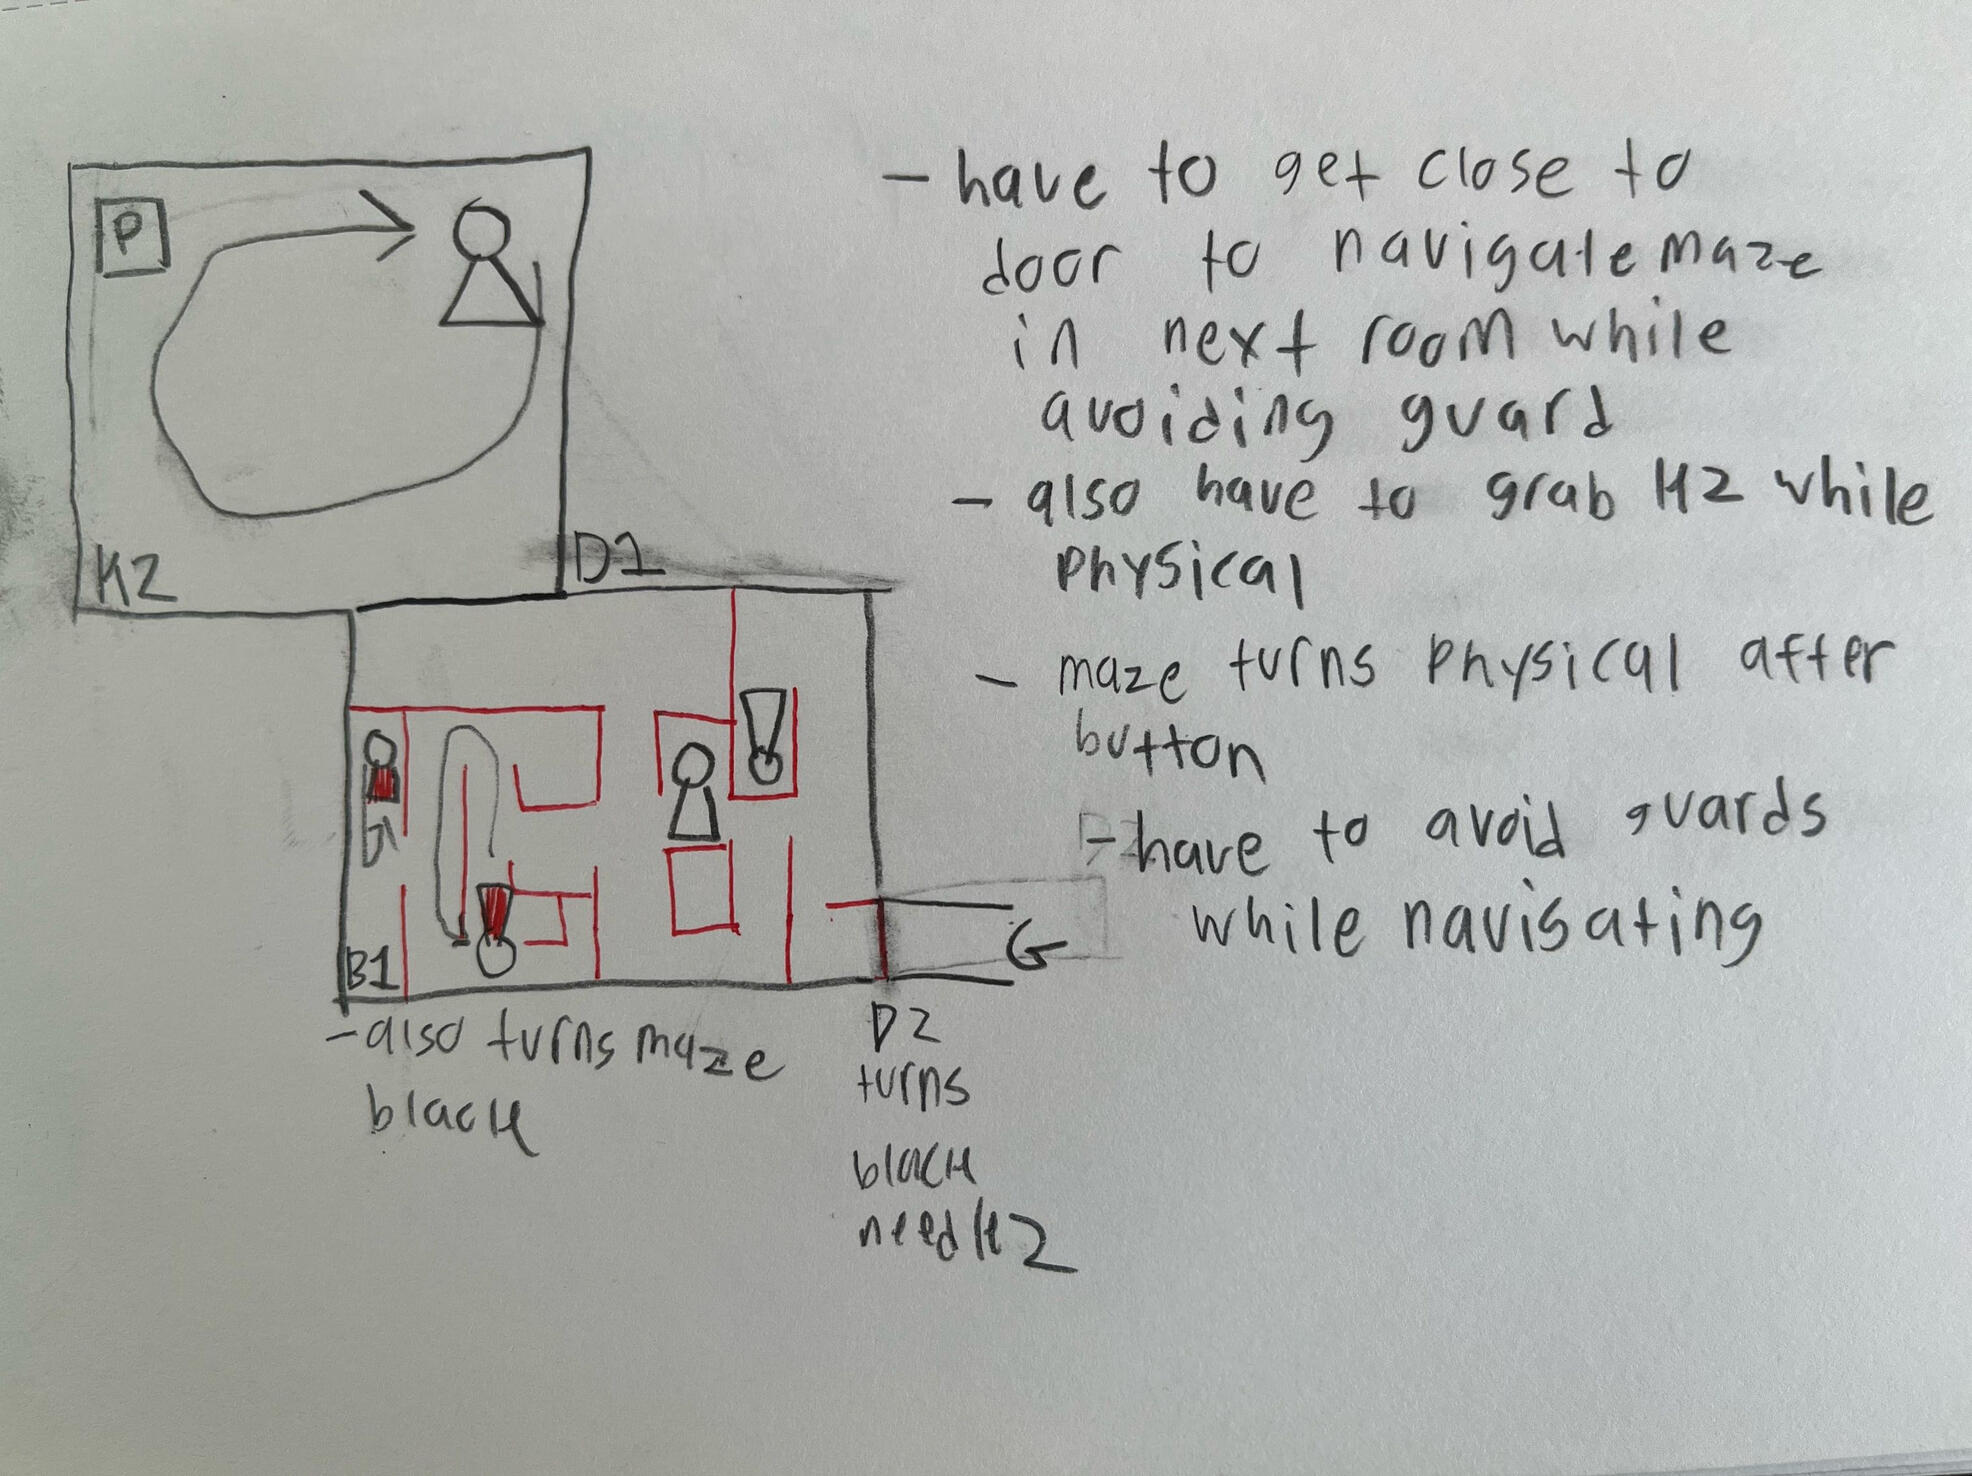 P
K2
D1
B1
G
- also turns maze
black
D2
turns
black
need K2
- have to get close to
door to navigate maze
in next room while
avoiding guard
- also have to grab K2 while
physical
- maze turns physical after
button
- have to avoid guards
while navigating